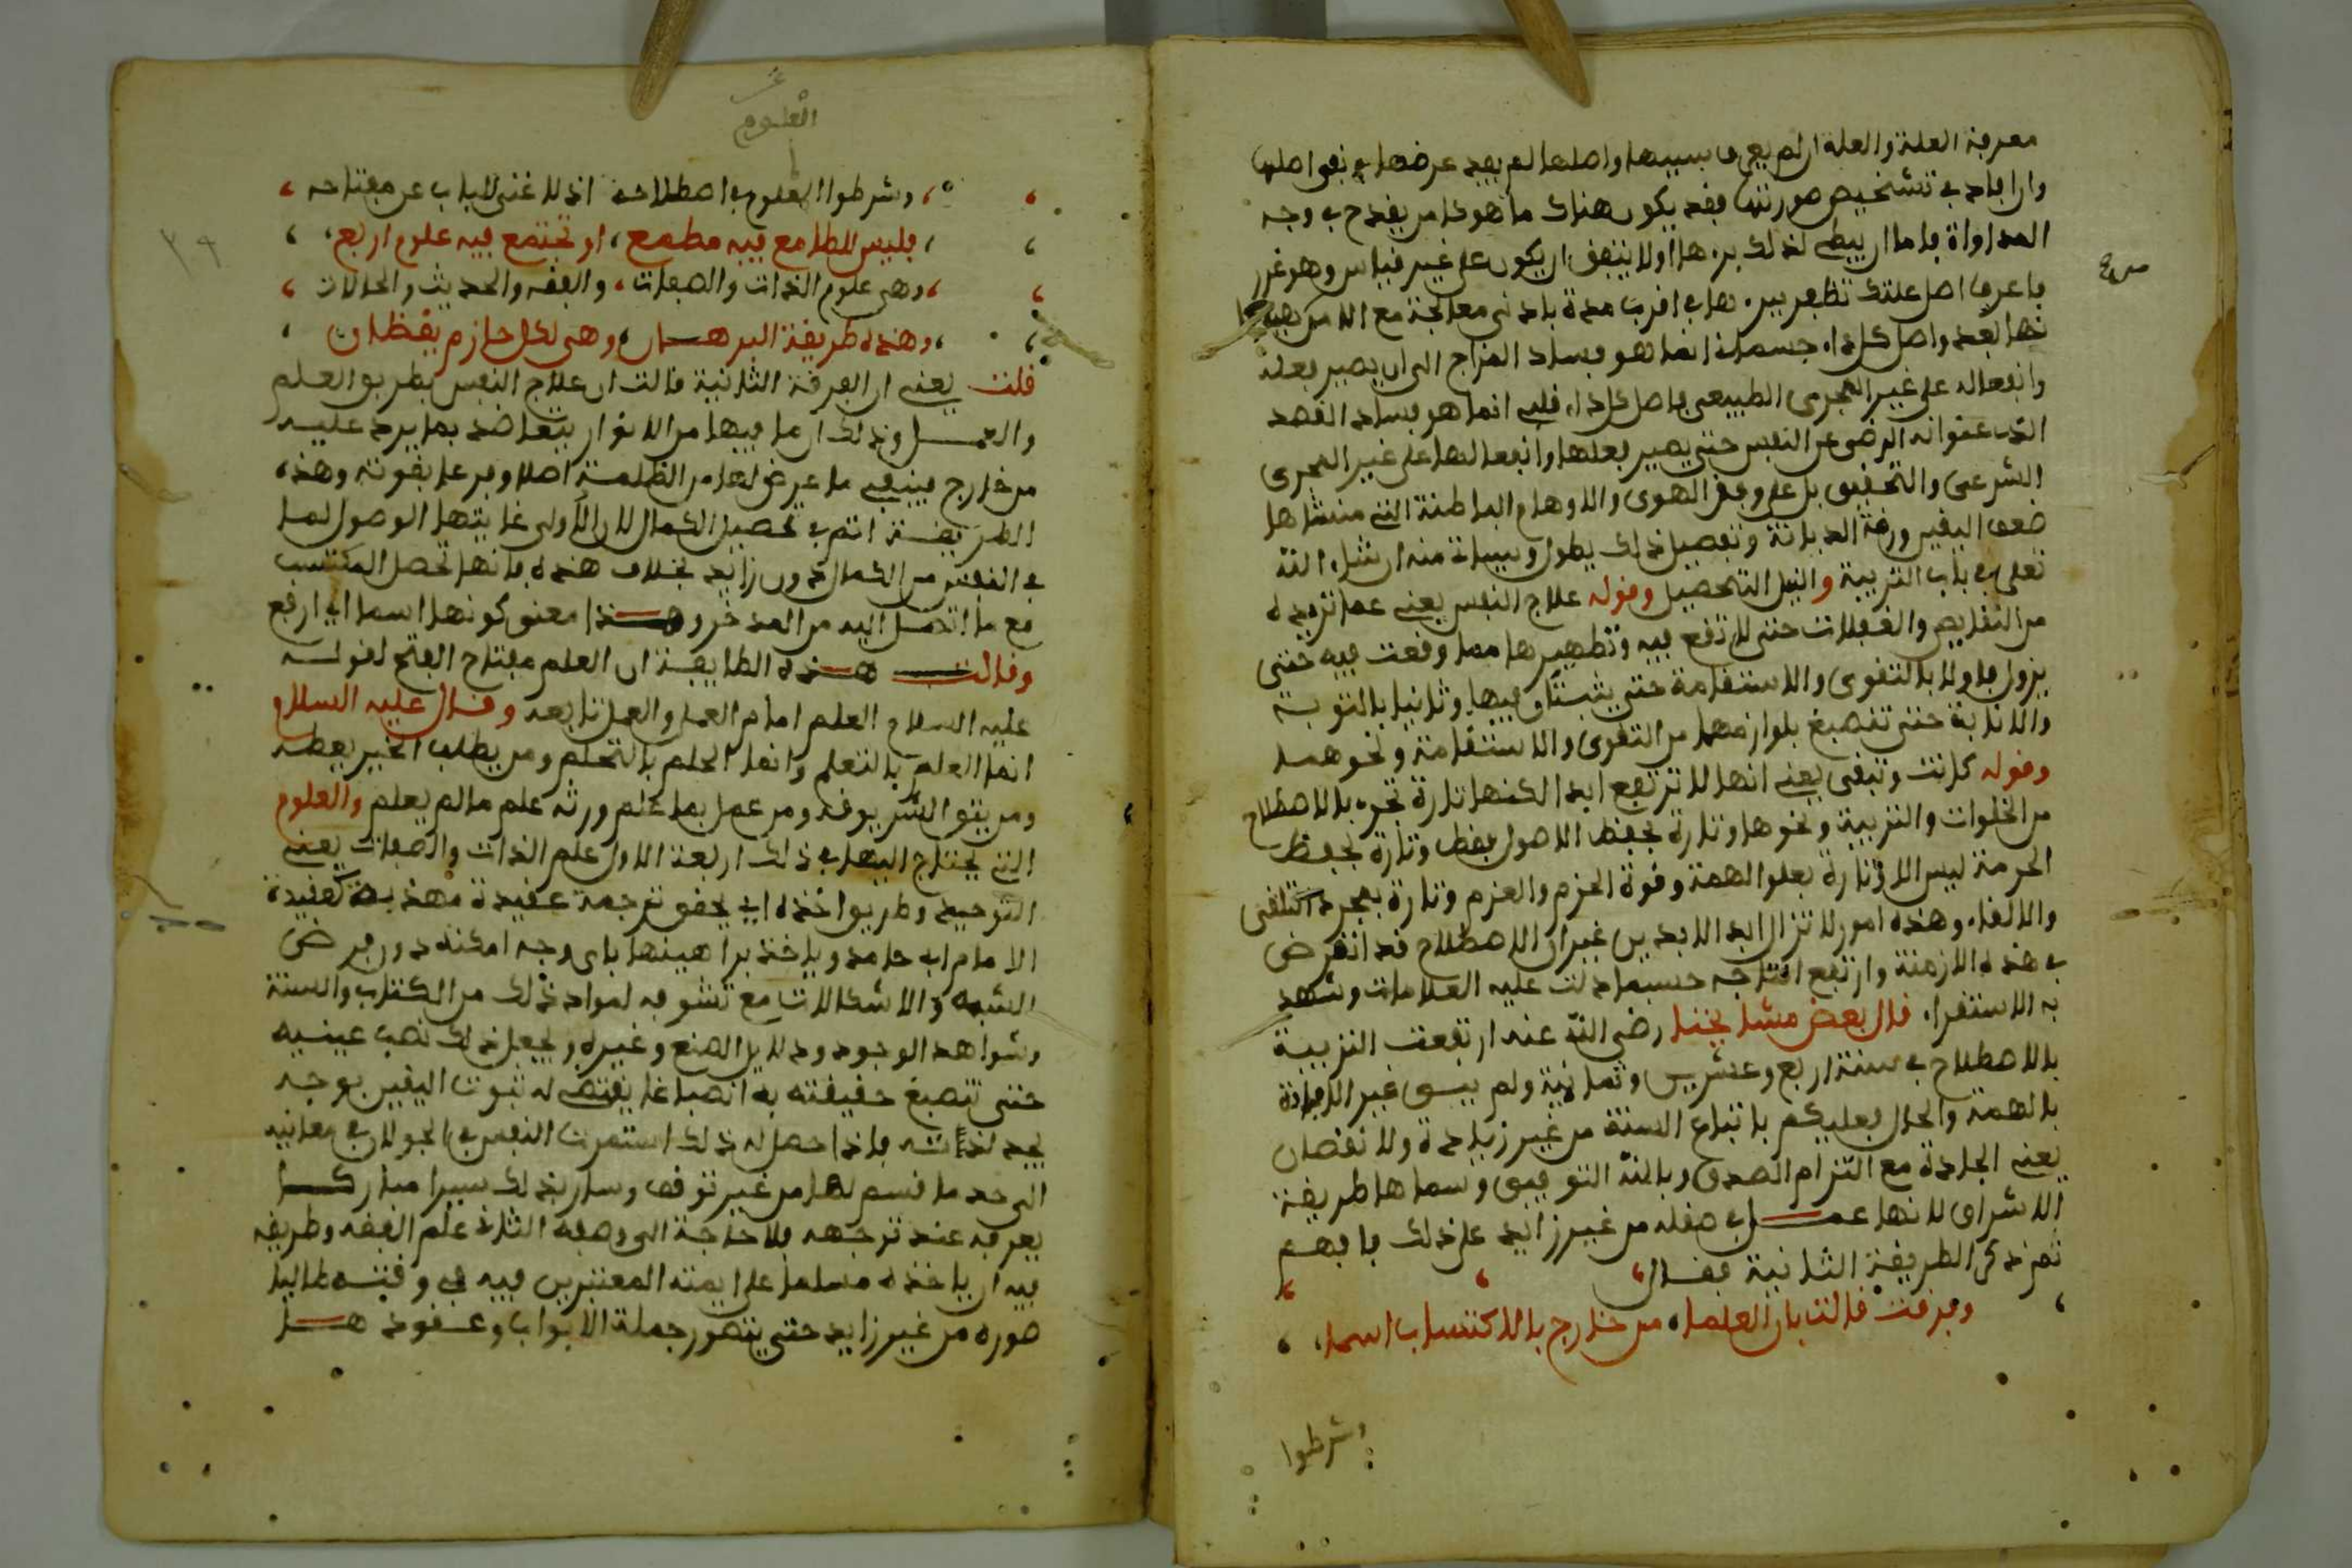 معرفة العلة والعلة ان لم يعرف سببها واصلها لم يفد عرضها في نفي اصلها
وان افاد في تشخيص صورتها فقد يكون هناك ما هو كامن يقدح في وجه
المداواة فاما ان يبطي لذلك برءها او لا يتفق ان يكون على غير قياس وهو غرر
فاعرف اصل علتك تظفر ببرءها في اقرب مدة بادنى معالجة مع الامن
بها بعد واصل كل داء جسماني انما هو فساد المزاج الى ان يصير فعله
وانفعاله على غير المجرى الطبيعي فاصل كل داء قلبي انما هو فساد القصد
الذي عنوانه الرضى عن النفس حتى يصير فعلها وانفعالها على غير المجرى
الشرعي والتحقيق بل على وفق الهوى والاوهام الباطنة التي منشاها
ضعف اليقين ورقة الديانة وتفصيل ذلك يطول وسيات منه ان شاء الله
تعلى في باب التربية والنيل التحصيل وقوله علاج النفس يعني عما تريده
من النقايص والغفلات حتى لا تقع فيه وتطهيرها مما وقعت فيه حتى
يزول فاولا بالتقوى والاستقامة حتى يثبتا فيها وثانيا بالتوبة
والانابة حتى تنصبغ بلوازمهما من التقوى والاستقامة ونحوهما
وقوله كانت وتبقى يعني انها لا ترتفع ابدا لكنها تارة تجري بالاصطلاح
من الخلوات والتربية ونحوها وتارة بحفظ الاصول فقط وتارة بحفظ
الحرمة ليس الا وتارة بعلو الهمة وقوة الحزم والعزم وتارة بمجرد التلقي
والالقاء وهذه امور لا تزال ابد الابدين غير ان الاصطلاح قد انقرض
في هذه الازمنة وارتفع انتاجه حسبما دلت عليه العلامات وشهد
به الاستقراء قال بعض مشايخنا رضي الله عنه ارتفعت التربية
بالاصطلاح في سنة اربع وعشرين وثمانية ولم يبق غير الافادة
بالهمة والحال فعليكم باتباع السنة من غير زيادة ولا نقصان
يعني الجادة مع التزام الصدق وبالله التوفيق وسماها طريقة
الاشراق لانها عمل في صقله من غير زايد على ذلك فافهم
ثم ذكر الطريقة الثانية فقال
وفرقت قالت بان العلما، من خارج بالاكتساب اسما،
وشرطوا
العلوم
وشرطوا العلوم في اصطلاحه اذ لا غنى للباب عن مفتاحه
فليس للطامع فيه مطمع، او تجتمع فيه علوم اربع،
وهي علوم الذات والصفات، والفقه والحديث والحالات
وهذه طريقة البرهان، وهي لكل حازم يقظان
قلت يعني ان الفرقة الثانية قالت ان علاج النفس بطريق العلم
والعمل وذلك ان ما فيها من الانوار يتعاضد بما يرد عليه
من خارج فينفي ما عرض لها من الظلمة اصلا وفرعا بقوته وهذه
الطريقة اتم في تحصيل الكمال لان الاولى غايتها الوصول لما
في النفس من الكمال دون زايد بخلاف هذه فانها تحصل المكتسب
مع ما اتصل اليه من المدخر وهذا معنى كونها اسما اي ارفع
وقالت هذه الطايفة ان العلم مفتاح الفتح لقوله
عليه السلام العلم امام العمل والعمل تابعه وقال عليه السلام
انما العلم بالتعلم وانما الحلم بالتحلم ومن يطلب الخير يعطه
ومن يتق الشر يوقه ومن عمل بما علم ورثه علم ما لم يعلم والعلوم
التي يحتاج اليها في ذلك اربعة الاول علم الذات والصفات يعني
التوحيد وطريق اخذه اي يحقق ترجمة عقيدة مهذبة كعقيدة
الامام ابي حامد وياخذ براهينها باي وجه امكنه دون فرض
الشبه والاشكالات مع تشوفه لمواد ذلك من الكتاب والسنة
وشواهد الوجود ودلايل الصنع وغيره ويجعل ذلك نصب عينيه
حتى تنصبغ حقيقته به انصباغا يقتضي له ثبوت اليقين بوجه
يجد لذاته فاذا حصل له ذلك استمرت النفس في الجولان في معانيه
الى حد ما قسم لها من غير توقف وسار بذلك سيرا مباركا
يعرفه عند توجهه فلا حاجة الى وصفه الثاني علم الفقه وطريقه
فيه ان ياخذه مسلما على ايمته المعتبرين فيه في وقته طالبا
صوره من غير زايد حتى يتصور جملة الابواب وعقودها